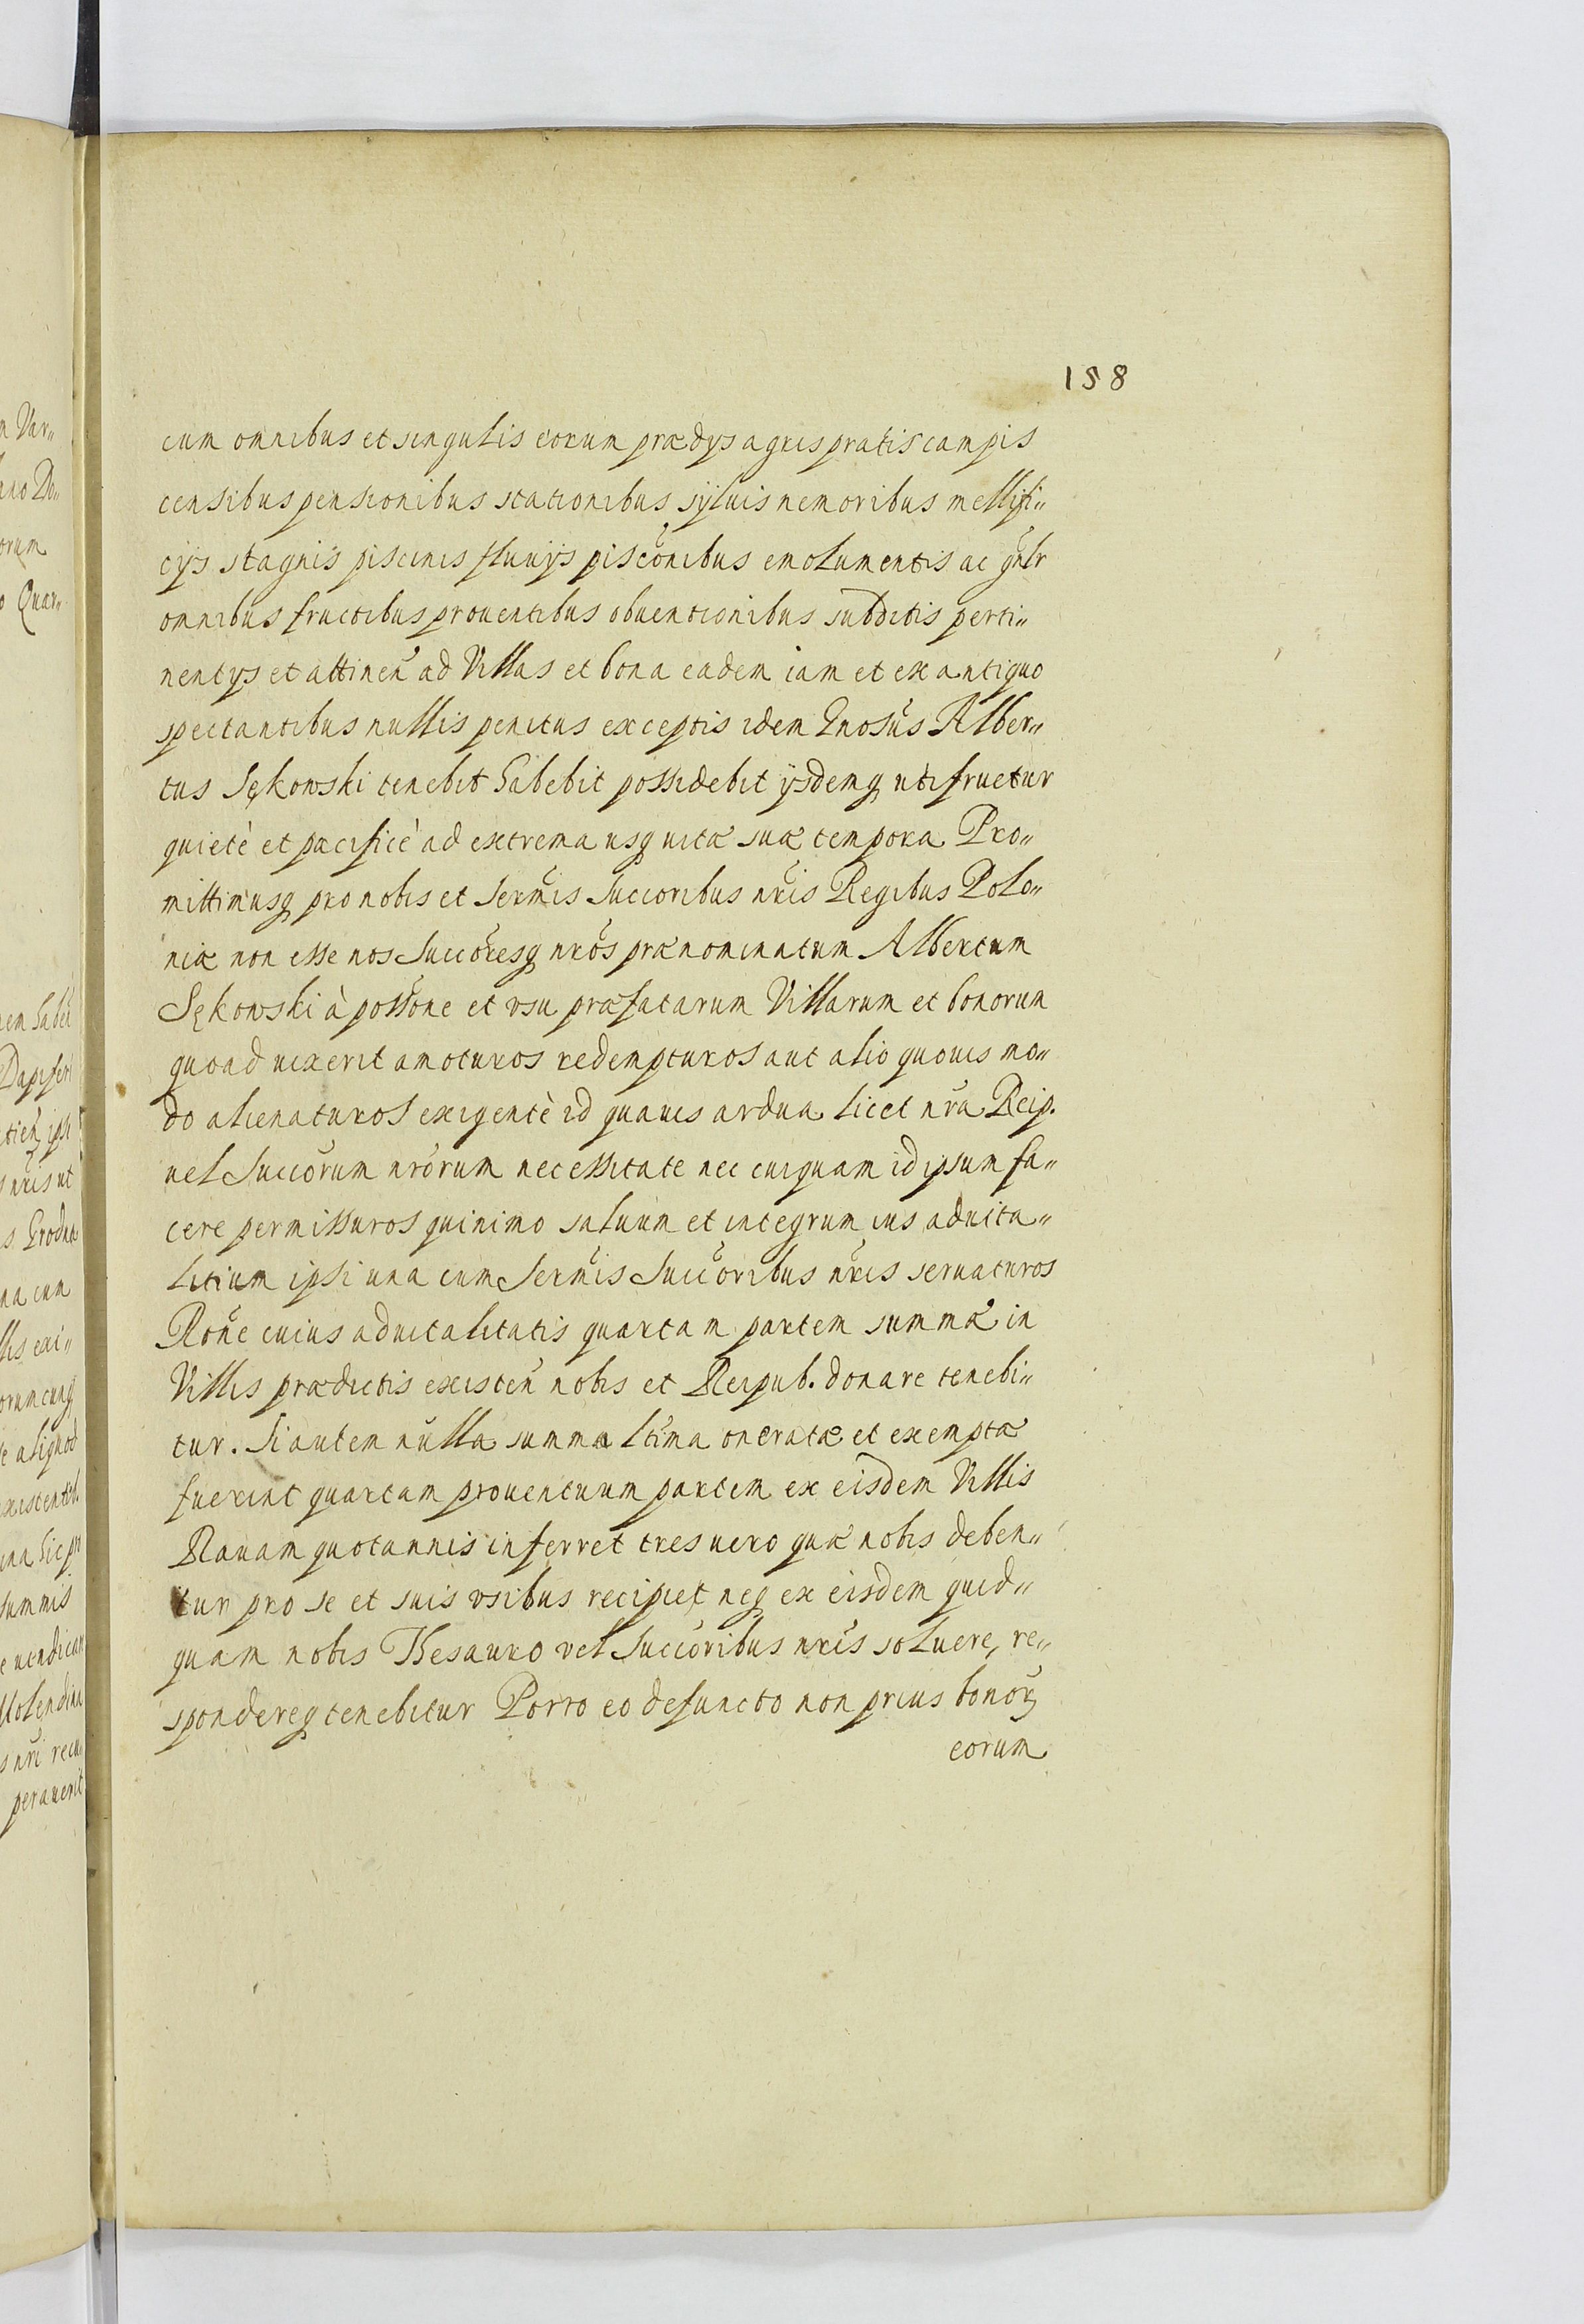 158
cum omnibus et singulis eorum prædÿs agris pratis campis
censibus pensionibus stationibus sÿluis nemoribus mellifi„
cÿs stagnis piscinis fluuÿs piscōnibus emolumentis ac gn̄lr
omnibus fructibus prouentibus obuentionibus subditis perti„
nentÿs et attinen̄ ad Villas et bona eadem iam et ex antiquo
spectantibus nullis penitus exceptis idem Gnōsus Alber„
tus Sękowski tenebit habebit possidebit ÿsdemq utifruetur
quietè et pacificè ad extrema usq uitæ suæ tempora Pro„
mittimusq pro nobis et Serm̄is Succorībus nr̄is Regibus Polo„
niæ non esse nos Succorēsq nr̄os prænominatum Albertum
Sękowski à possōne et vsu præfatarum Villarum et bonorum
quoad uixerit amoturos redempturos aut alio quouis mo„
do alienaturos exigentè id quauis ardua licet nrā Reip.
uel Succōrum nrōrum necessitate nec cuiquam id ipsum fa„
cere permissuros quinimo saluum et integrum ius aduita„
litium ipsi una cum Serm̄is Succorībus nr̄is seruaturos
Ron̄e cuius aduitalitatis quartam partem summæ in
Villis prædictis existen̄ nobis et Reipub. donare tenebi„
tur. Si autem nulla summa ltīma oneratæ et exemptæ
fuerint quartam prouentuum partem ex eisdem Villis
Rauam quotannis inferret tres uero quæ nobis deben„
tur pro se et suis vsibus recipiet neq ex eisdem quid„
quam nobis Thesauro vel Succorībus nr̄is soluere, re„
spondereq tenebitur Porro eo defuncto non prius bonoꝝ
eorum